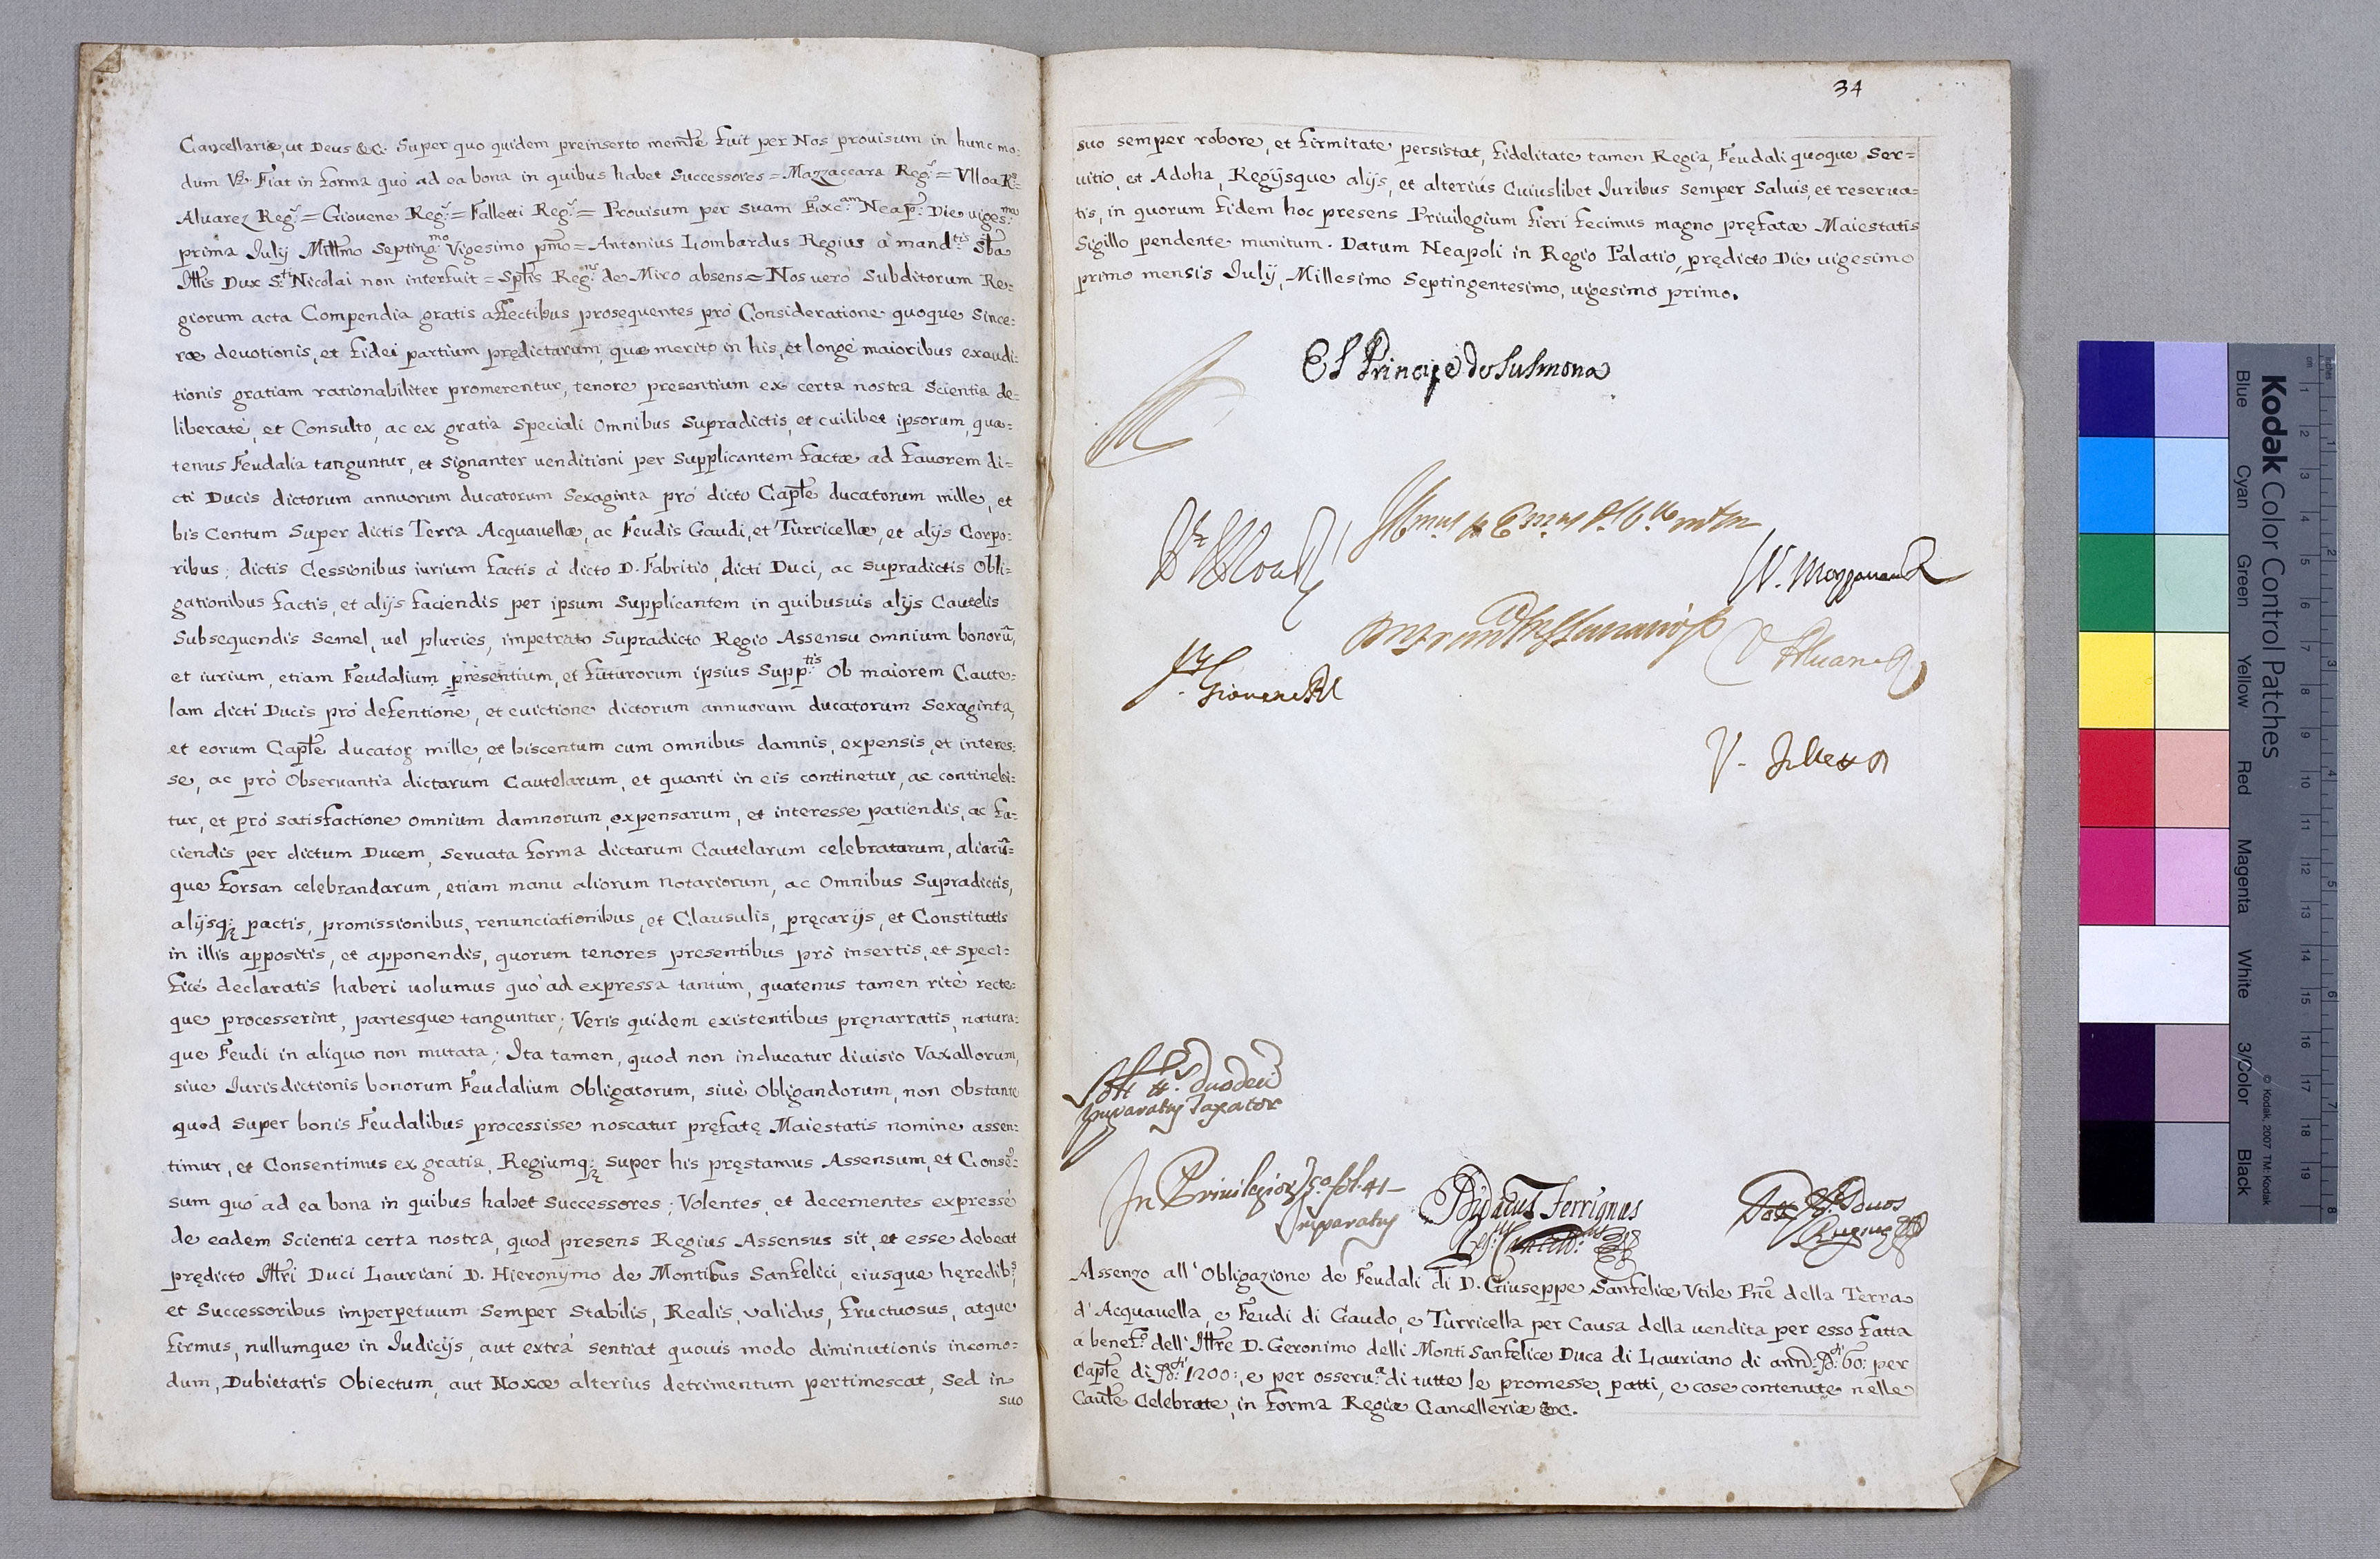 Cancellariæ, ut Deus &c: Super quo quidem preinserto memľe fuit per Nos prouisum in hunc mo:
dum Vz. Fiat in forma quò ad ea bona in quibus habet Successores = Mazzaccara Reg.s = Vlloa R.s =
Aluarez Reg.s = Giouene Reg.s = Falletti Reg.s = Prouisum per suam Exc.am Neap.: Die uiges.ma
prima Julij Millmo Septing.mo Vigesimo pmo = Antonius Lombardus Regius à mand.tis Sba
Illis Dux S.ti Nicolai non interfuit = Splis Reg.ns de Miro absens = Nos uerò Subditorum Re:
giorum acta Compendia gratis affectibus prosequentes prò Consideratione quoque Since:
ræ deuotionis, et fidei partium prędictarum, quæ merito in his, et longè maioribus exaudi:
tionis gratiam rationabiliter promerentur, tenore presentium ex certa nostra Scientia de:
liberatè, et Consulto, ac ex gratia Speciali Omnibus Supradictis, et cuilibet ipsorum, qua:
tenus Feudalia tanguntur, et Signanter uenditioni per Supplicantem factæ ad fauorem di=
cti Ducis dictorum annuorum ducatorum Sexaginta prò dicto Caple ducatorum mille, et
bis Centum Super dictis Terra Acquauellæ, ac Feudis Gaudi, et Turricellæ, et alijs Corpo:
ribus; dictis Cessionibus iurium factis à dicto D. Fabritio, dicti Duci, ac supradictis Obli=
gationibus factis, et alijs faciendis per ipsum Supplicantem in quibusuis alijs Cautelis
Subsequendis Semel, uel pluries, impetrato Supradicto Regio Assensu omnium bonorū,
et iurium, etiam Feudalium presentium, et futurorum ipsius Supp.tis Ob maiorem Caute:
lam dicti Ducis prò defentione, et euictione dictorum annuorum ducatorum Sexaginta,
et eorum Caple ducator mille, et biscentum cum omnibus damnis, expensis, et interes:
se, ac prò Obseruantia dictarum Cautelarum, et quanti in eis continetur, ac continebi:
tur, et prò satisfactione omnium damnorum, expensarum, et interesse patiendis, ac fa:
ciendis per dictum Ducem, Seruata forma dictarum Cautelarum celebratarum, aliarū=
que forsan celebrandarum, etiam manu aliorum Notariorum, ac Omnibus Supradictis,
alijsq; pactis, promissionibus, renunciationibus, et Clausulis, pręcarijs, et Constitutis
in illis appositis, et apponendis, quorum tenores presentibus prò insertis, et Speci=
ficè declaratis haberi uolumus quò ad expressa tantùm, quatenus tamen ritè recte:
que processerint, partesque tanguntur; Veris quidem existentibus pręnarratis, natura:
que Feudi in aliquo non mutata; Ita tamen, quod non inducatur diuisio Vaxallorum,
siue Jurisdictionis bonorum Feudalium Obligatorum, siuè Obligandorum, non Obstante
quod Super bonis Feudalibus processisse noscatur pręfatę Maiestatis nomine assen:
timur, et Consentimus ex gratia, Regiumq; Super his pręstamus Assensum, et Consē:
sum quò ad ea bona in quibus habet Successores; Volentes, et decernentes expressè
de eadem Scientia certa nostra, quod presens Regius Assensus sit, et esse debeat
prędicto Illri Duci Lauriani D. Hieronymo de Montibus Sanfelici, eiusque hęredib.s,
et Successoribus imperpetuum Semper Stabilis, Realis, validus, fructuosus, atque
firmus, nullumque in Iudicijs, aut extrà sentiat quouis modo diminutionis incomo=
dum, Dubietatis Obiectum, aut Noxæ alterius detrimentum pertimescat, Sed in
suo
34
suo semper robore, et firmitate persistat, fidelitate tamen Regia, Feudali quoque Ser=
uitio, et Adoha, Regijsque alijs, et alterius Cuiuslibet Iuribus semper Saluis, et reserua=
tis, in quorum fidem hoc presens Priuilegium fieri fecimus magno pręfatæ Maiestatis
Sigillo pendente munitum. Datum Neapoli in Regio Palatio, prędicto Die uigesimo
primo mensis Julij, Millesimo Septingentesimo, uigesimo primo.
El Principe de Sulmona
Vt Vlloa R.
V. Mazzaccara R
V Aluarez
Giouene R
V. Falletti R
Taxator
In Priuilegior. 5.o fol. 41
Didacus Ferrignus
Assenzo all'Obligazione de Feudali di D. Giuseppe Sanfelice Vtile Pñe della Terra
d'Acquauella, e Feudi di Gaudo, e Turricella per Causa della uendita per esso fatta
a benef.o dell'Illre D. Geronimo delli Monti Sanfelice Duca di Lauriano di ann: d.ti 60: per
Caple di d.ti 1200:, e per osseru.a di tutte le promesse, patti, e cose contenute nelle
Cautle Celebrate, in forma Regiæ Cancelleriæ &c.